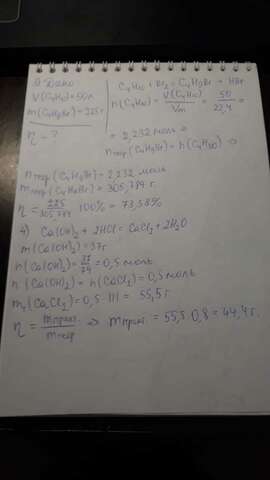 3) Дано
V(C4H10)=50л
m(C4H9Br)=225г
η = ?
C4H10 + Br2 = C4H9Br + HBr
n(C4H10) = V(C4H10)/Vm = 50/22,4 =
= 2,232 моль =
nтеор(C4H9Br) = n(C4H10) ⇒
nтеор(C4H9Br) = 2,232 моль
mтеор(C4H9Br) = 305,784 г.
η = 225/305,784 · 100% = 73,58%
4) Ca(OH)2 + 2HCl = CaCl2 + 2H2O
m(Ca(OH)2) = 37г
n(Ca(OH)2) = 37/74 = 0,5 моль
n(Ca(OH)2) = n(CaCl2) = 0,5 моль
mт(CaCl2) = 0,5 · 111 = 55,5 г
η = mпракт./mтеор ⇒ mпракт. = 55,5 · 0,8 = 44,4 г.